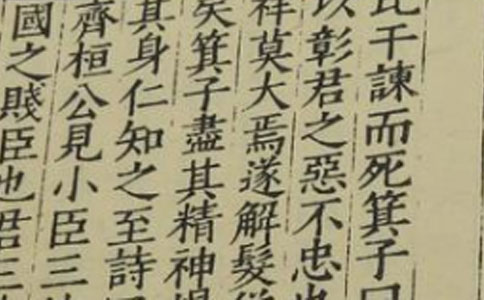 比干諫而死箕子曰
以彰君之惡不忠也
祥莫大焉遂解髮
矣箕子盡其精神竭
其身仁知之至詩
齊桓公見小臣三
國之賤臣也君三